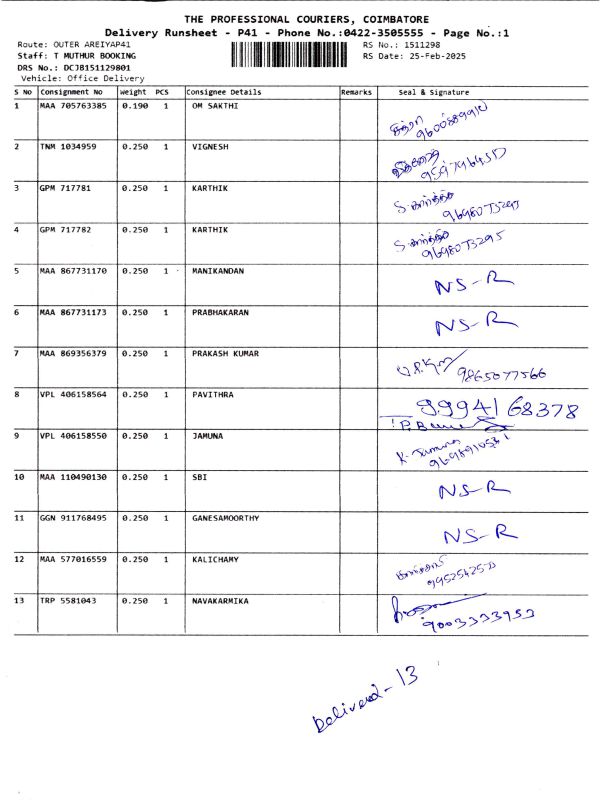 THE PROFESSIONAL COURIERS, COIMBATORE
Delivery Runsheet - P41 - Phone No.:0422-3505555 - Page No.:1
Route: OUTER AREIYAP41 RS No.: 1511298
Staff: T MUTHUR BOOKING RS Date: 25-Feb-2025
DRS No.: DCJB151129801
Vehicle: Office Delivery
S No Consignment No Weight PCS Consignee Details Remarks Seal & Signature
1 MAA 705763385 0.190 1 OM SAKTHI
2 TNM 1034959 0.250 1 VIGNESH
3 GPM 717781 0.250 1 KARTHIK S. கார்த்திக்
4 GPM 717782 0.250 1 KARTHIK S. கார்த்திக்
9698073295
5 MAA 867731170 0.250 1 MANIKANDAN NS-R
6 MAA 867731173 0.250 1 PRABHAKARAN NS-R
7 MAA 869356379 0.250 1 PRAKASH KUMAR
9865077566
8 VPL 406158564 0.250 1 PAVITHRA 9994168378
9 VPL 406158550 0.250 1 JAMUNA K. Jamuna
10 MAA 110490130 0.250 1 SBI NS-R
11 GGN 911768495 0.250 1 GANESAMOORTHY NS-R
12 MAA 577016559 0.250 1 KALICHAMY
13 TRP 5581043 0.250 1 NAVAKARMIKA
9003333953
Delivered - 13